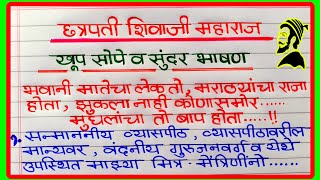 छत्रपती शिवाजी महाराज
खूप सोपे व सुंदर भाषण
भवानी मातेचा लेक तो, मराठ्यांचा राजा
होता, झुकला नाही कोणासमोर......
मुघलांचा तो बाप होता.....!!
१. सन्माननीय व्यासपीठ, व्यासपीठावरील
मान्यवर, वंदनीय गुरुजनवर्ग व येथे
उपस्थित माझ्या मित्र-मैत्रिणींनो.....